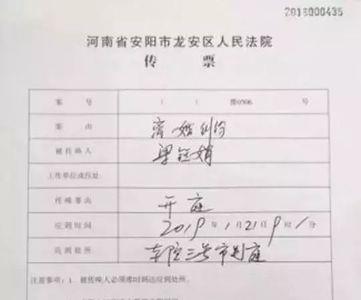 2018000435
河南省安阳市龙安区人民法院
传 票
案 号 ( ) 豫0506 ( ) 号
案 由 离婚纠纷
被传唤人
工作单位或住址
传唤事由 开庭
应到时间 2019年1月21日9时/分
应到处所
注意事项: 1、被传唤人必须准时到达应到处所。